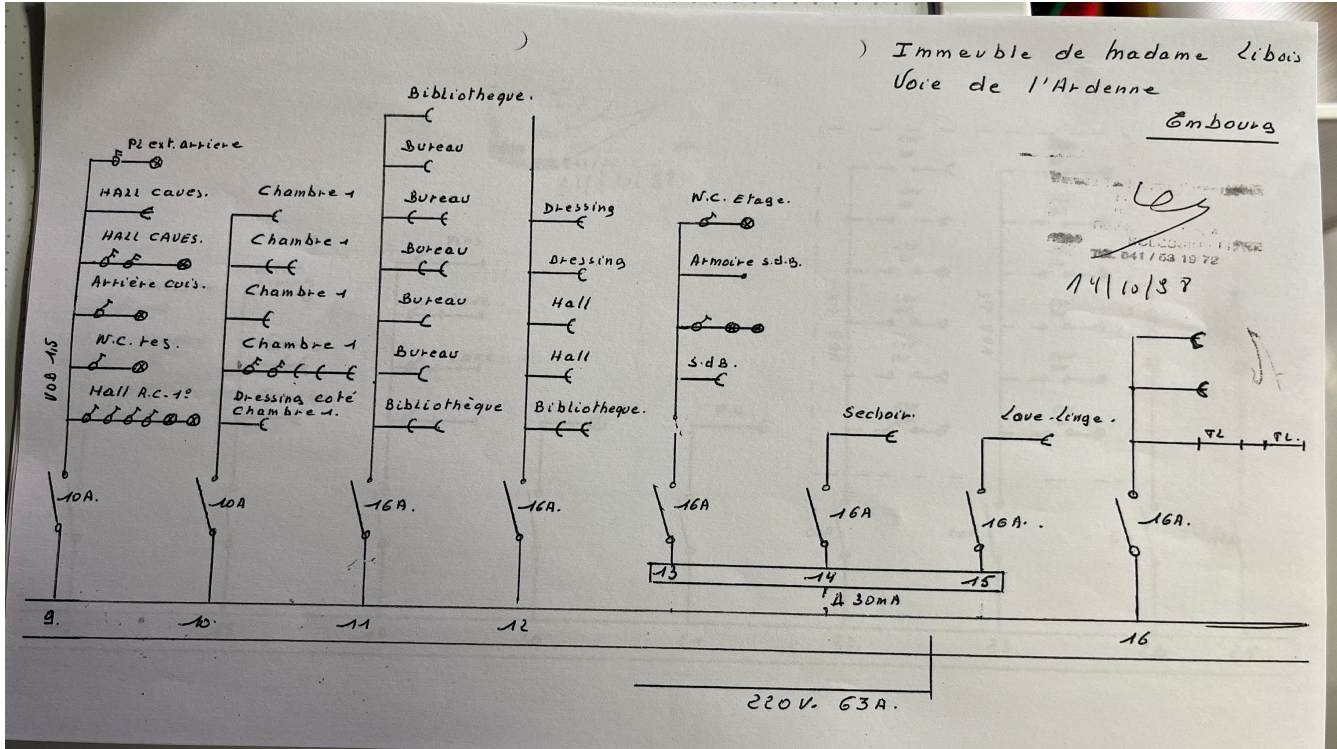 Immeuble de madame Libois
Voie de l'Ardenne
Embourg
041/63 19 72
14/10/98
Pl ext. arriere
HALL caves.
HALL CAVES.
Arrière cuis.
W.C. res.
Hall R.C. 1º
VOB 1,5
10A.
9.
Chambre 1
Chambre 1
Chambre 1
Chambre 1
Dressing coté
Chambre 1.
10A
10.
Bibliotheque.
Bureau
Bureau
Bureau
Bureau
Bureau
Bibliothèque
16A.
11
Dressing
Dressing
Hall
Hall
Bibliotheque.
16A.
12
W.C. Etage.
Armoire s.d.B.
S.dB.
16A
13
Sechoir.
16A
14
Lave-linge.
16A.
15
Δ 30mA
TL TL.
16A.
16
220V. 63A.